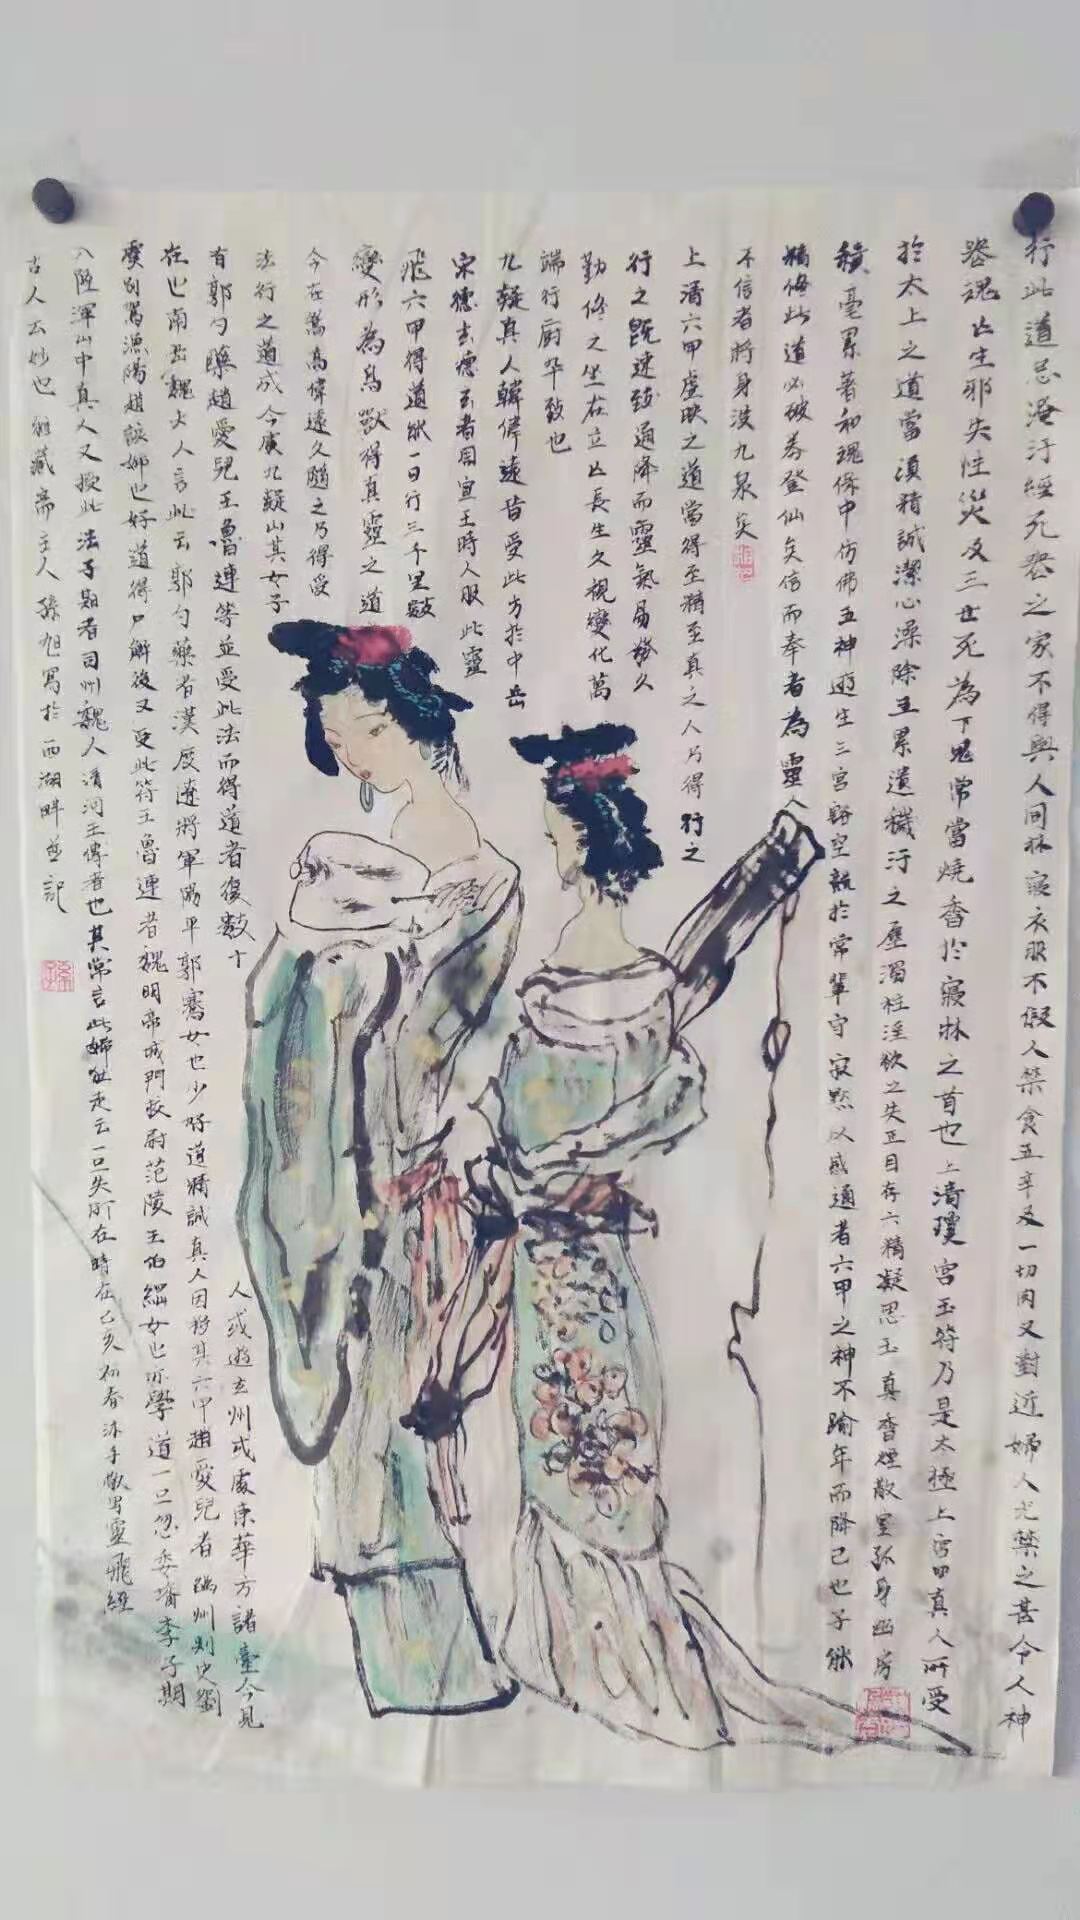 行此道忌淹汙經死喪之家不得與人同牀寢衣服不假人禁食五辛及一切肉又對近婦人尤禁之甚令人神
喪魂亡生邪失性災及三世死為下鬼常當燒香於寢牀之首也上清瓊宮玉符乃是太極上宮四真人所受
於太上之道當須精誠潔心澡除五累遺穢汙之塵濁杜淫欲之失正目存六精凝思玉真香煙散室孤身幽房
積毫累著和魂保中仿佛五神遊生三宮豁空競於常輩守寂默以感通者六甲之神不踰年而降已也子能
精修此道必破券登仙矣信而奉者為靈人
不信者將身沒九泉矣
上清六甲虛映之道當得至精至真之人乃得行之
行之既速致通降而靈氣易發久
勤修之坐在立亡長生久視變化萬
端行廚卒致也
九疑真人韓偉遠昔受此方於中岳
宋德玄德玄者周宣王時人服此靈
飛六甲得道能一日行三千里數
變形為鳥獸得真靈之道
今在嵩高偉遠久隨之乃得受
法行之道成今處九疑山其女子
有郭勺藥趙愛兒王魯連等並受此法而得道者復數十
人或遊玄州或處東華方諸臺今見
在也南岳魏夫人言此云郭勺藥者漢度遼將軍陽平郭騫女也少好道精誠真人因授其六甲趙愛兒者幽州刺史劉
虞別駕漁陽趙該姊也好道得尸解後又受此符王魯連者魏明帝城門校尉范陵王伯綱女也亦學道一旦忽委壻李子期
入陸渾山中真人又授此法子期者司州魏人清河王傳者也其常言此婦狂走云一旦失所在時在己亥初春沐手敬書靈飛經
古人云妙也 藏齋主人孫旭寫於西湖畔並記